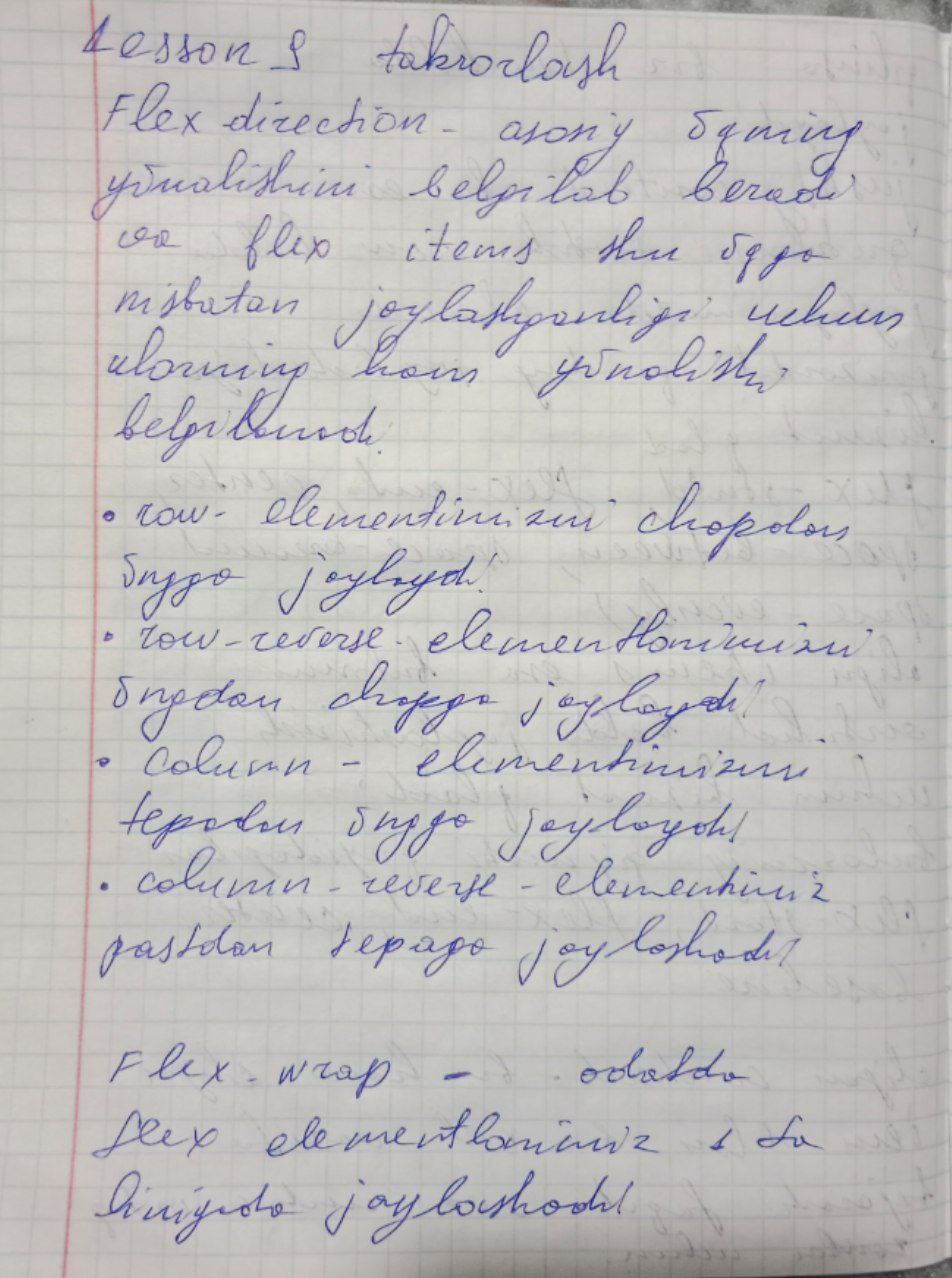 Lesson 9 takrorlash
Flex direction - asosiy õqning
yõnalishini belgilab beradi
va flex items shu õqga
nisbatan joylashganligi uchun
ularning ham yõnalishi
belgilanadi.
• row - elementimizni chapdan
õngga joylaydi!
• row-reverse - elementlarimizni
õngdan chapga joylaydi!
• column - elementimizni
tepadan õngga joylaydi!
• column-reverse - elementimiz
pastdan tepaga joylashadi!
Flex-wrap - odatda
flex elementlarimiz 1 ta
liniyada joylashadi!